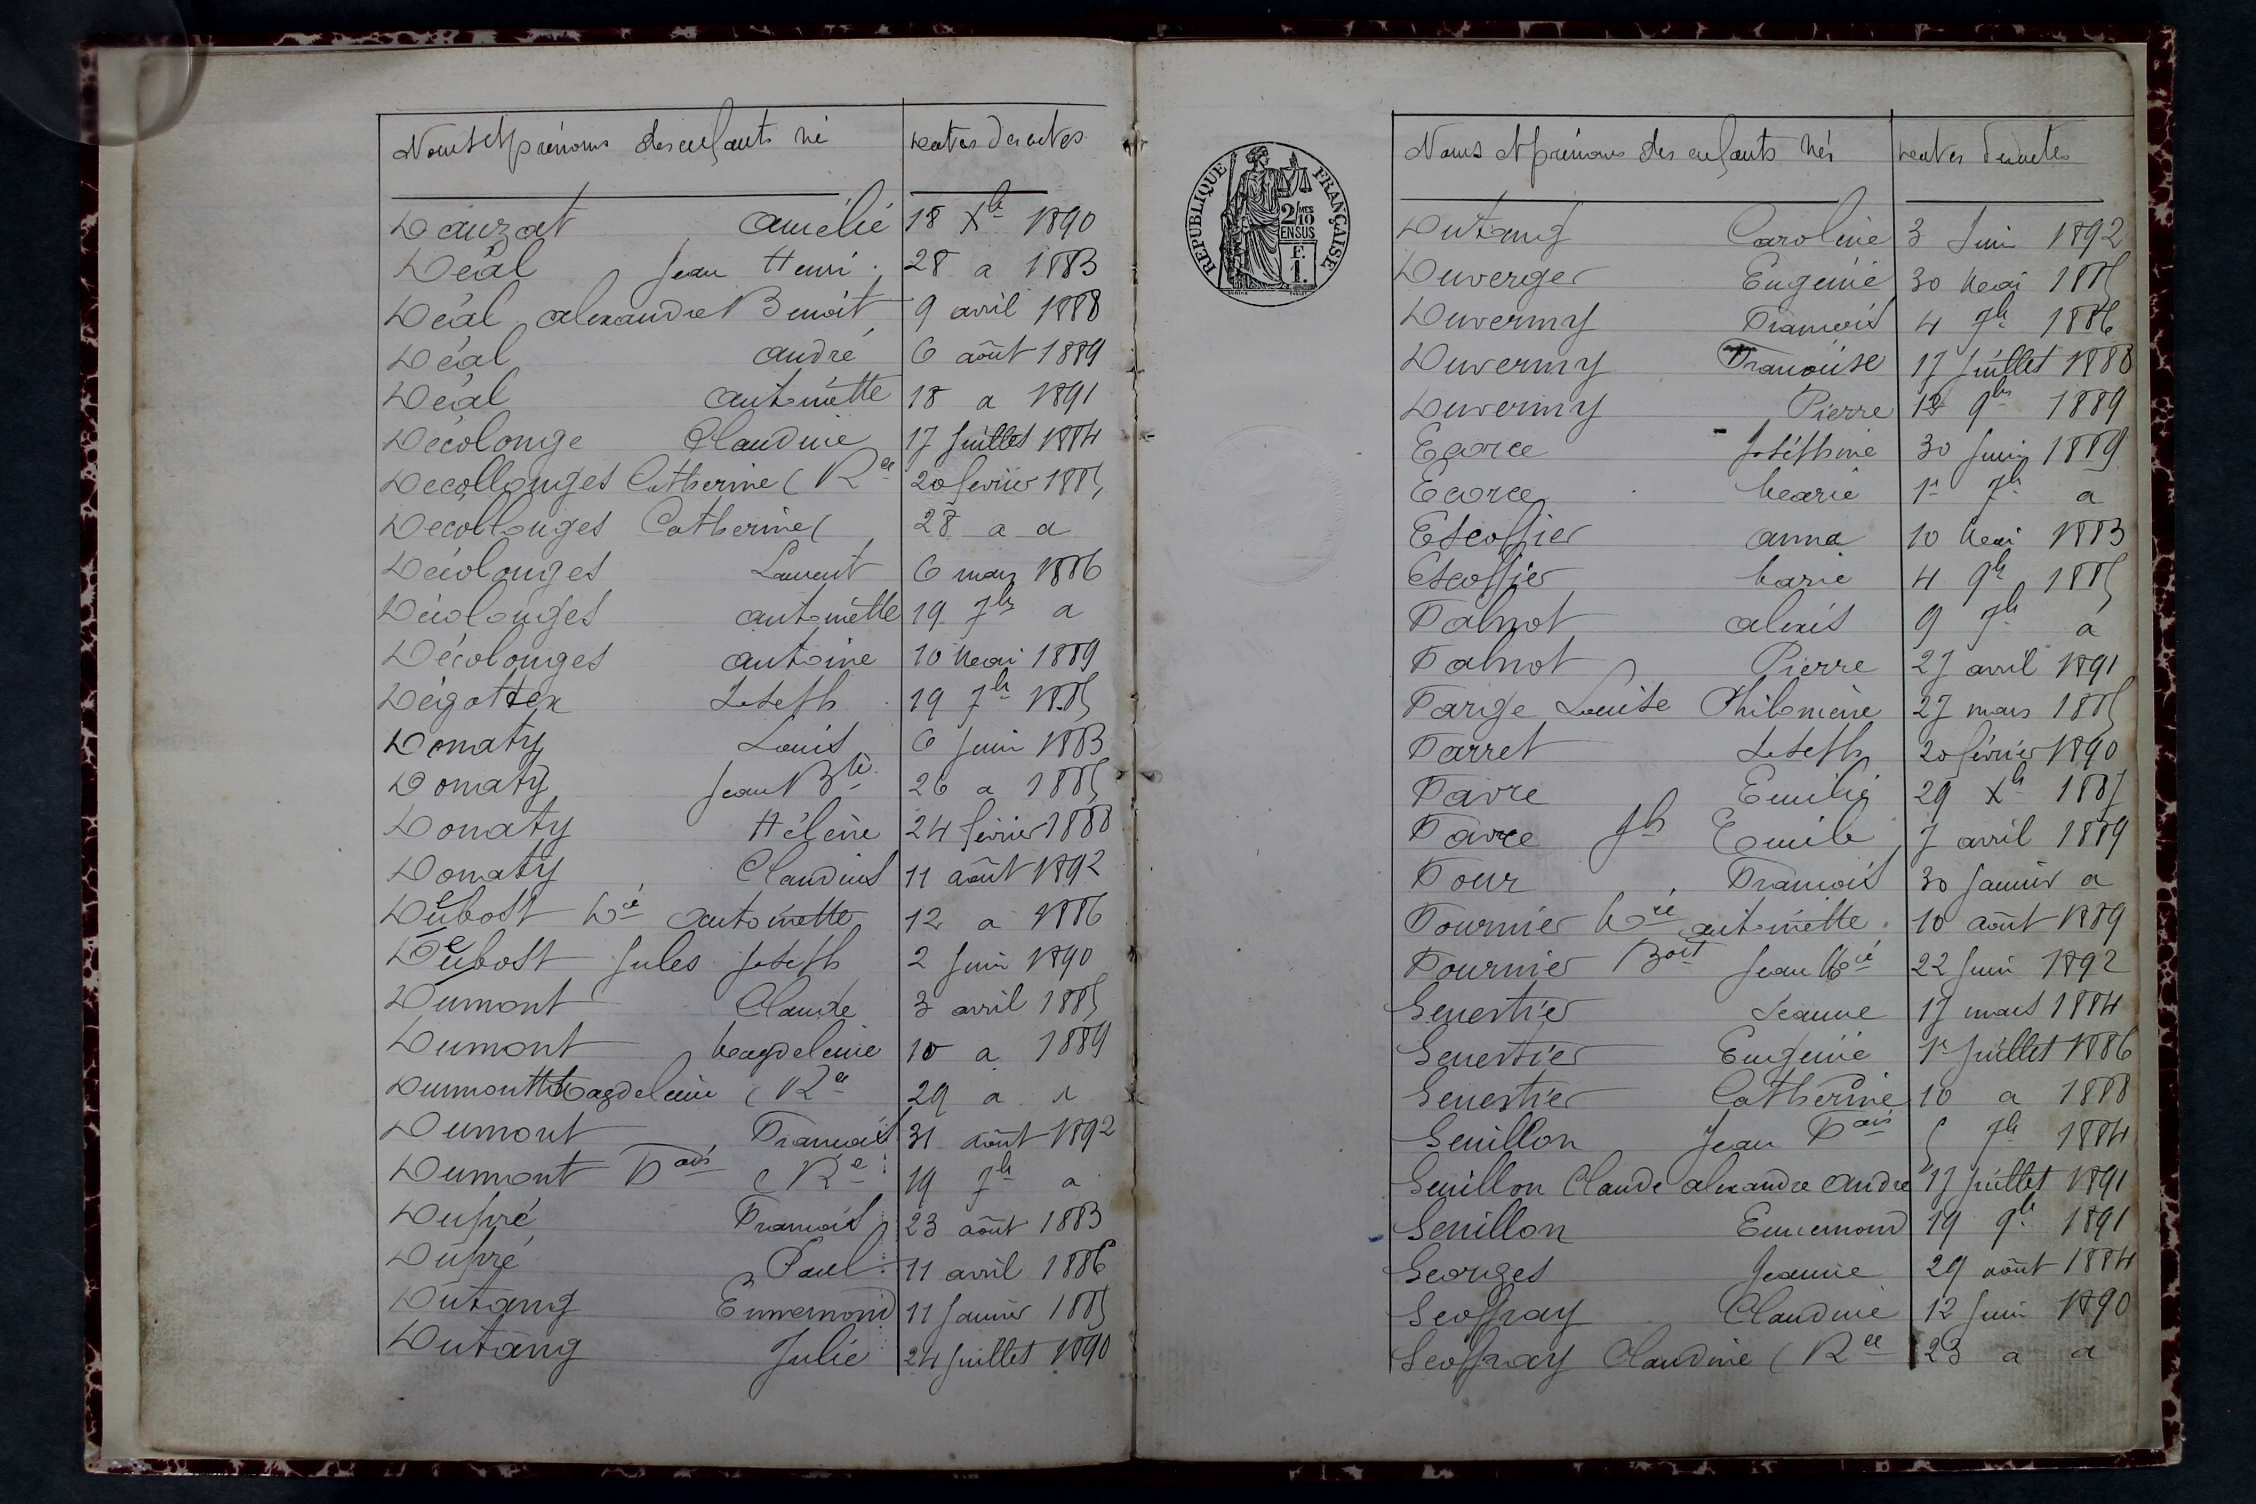 Noms et prénoms des enfants né Dates des actes
Dauzat Amélie 18 Xbre 1890
Déal Jean Henri 28 a 1883
Déal Alexandre Benoit 9 avril 1888
Déal André 6 août 1889
Déal Antoinette 18 a 1891
Décolonge Claudine 17 Juillet 1884
Decollonges Catherine (Rce 20 février 1885
Decollonges Catherine ( 28 a a
Décolonges Laurent 6 mars 1886
Décolonges Antoinette 19 7bre a
Décolonges Antoine 10 Mai 1889
Dégottex Joseph 19 7bre 1885
Donaty Louis 6 Juin 1883
Donaty Jean Bte 26 a 1885
Donaty Hélène 24 février 1888
Donaty Claudius 11 août 1892
Debost Mie Antoinette 12 a 1886
Debost Jules Joseph 2 Juin 1890
Dumont Claude 3 avril 1885
Dumont Magdeleine 10 a 1889
Dumont Magdeleine (Rce 29 a a
Dumont François 31 août 1892
Dumont Fois (Rce 19 7bre a
Dupré François 23 août 1883
Dupré Paul 11 avril 1886
Dutang Ennemond 11 Janvier 1885
Dutang Julie 24 Juillet 1890
REPUBLIQUE FRANÇAISE
2/10 MES
EN SUS
F.
1.
Noms et prénoms des enfants nés Dates des actes
Dutang Caroline 3 Juin 1892
Duverger Eugénie 30 Mai 1885
Duvermy François 4 7bre 1886
Duvermy Françoise 17 Juillet 1888
Duvermy Pierre 12 9bre 1889
Egorce Joséphine 30 Juin 1889
Egorce Marie 1er 7bre a
Escoffier Anna 10 Mai 1883
Escoffier Marie 4 9bre 1885
Falnot Alexis 9 7bre a
Falnot Pierre 27 avril 1891
Farge Louise Philomène 27 mars 1885
Farret Joseph 20 février 1890
Favre Emilie 29 Xbre 1887
Favre Jh Emile 7 avril 1889
Four François 30 Janvier a
Fournier Mie Antoinette 10 août 1889
Fournier Boit Jean Mie 22 Juin 1892
Genestier Jeanne 17 mars 1884
Genestier Eugénie 1er Juillet 1886
Genestier Catherine 10 a 1888
Genillon Jean Fois 5 7bre 1884
Genillon Claude Alexandre André 17 Juillet 1891
Genillon Ennemond 19 9bre 1891
Georges Jeanne 29 août 1884
Geoffray Claudine 12 Juin 1890
Geoffray Claudine (Rce 23 a a